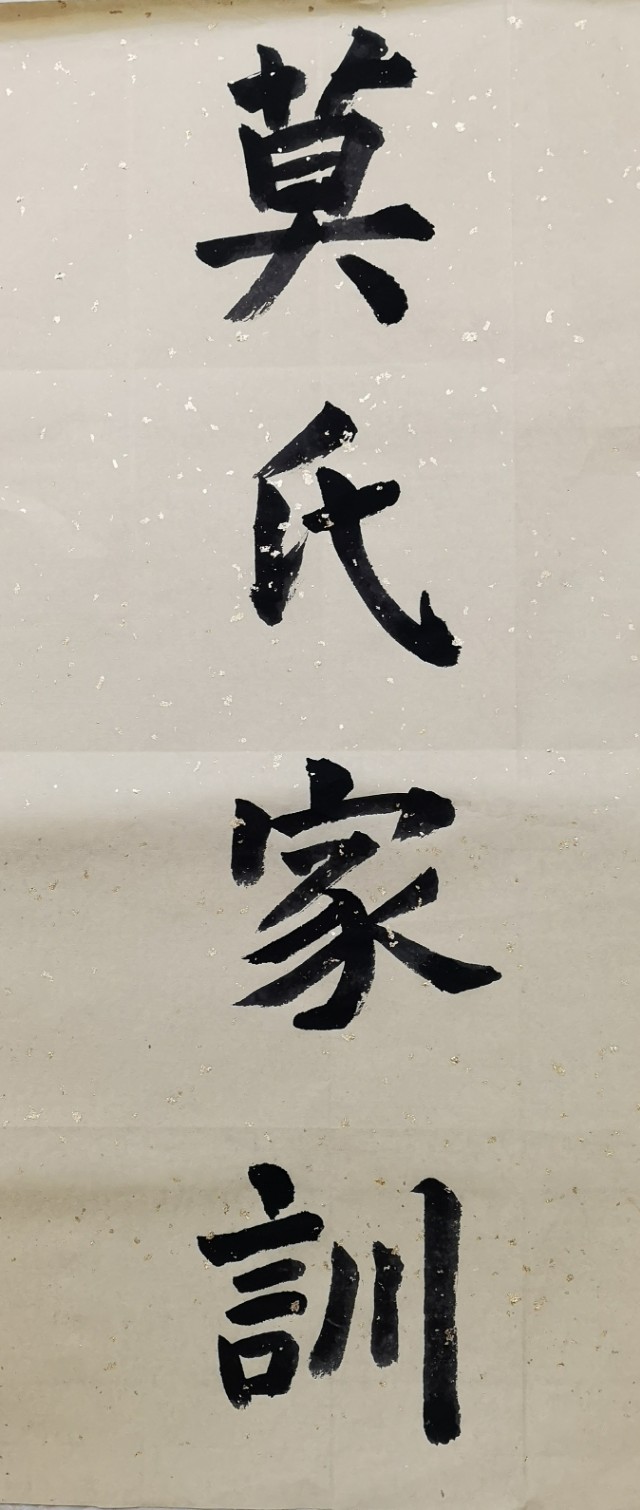 莫氏家訓